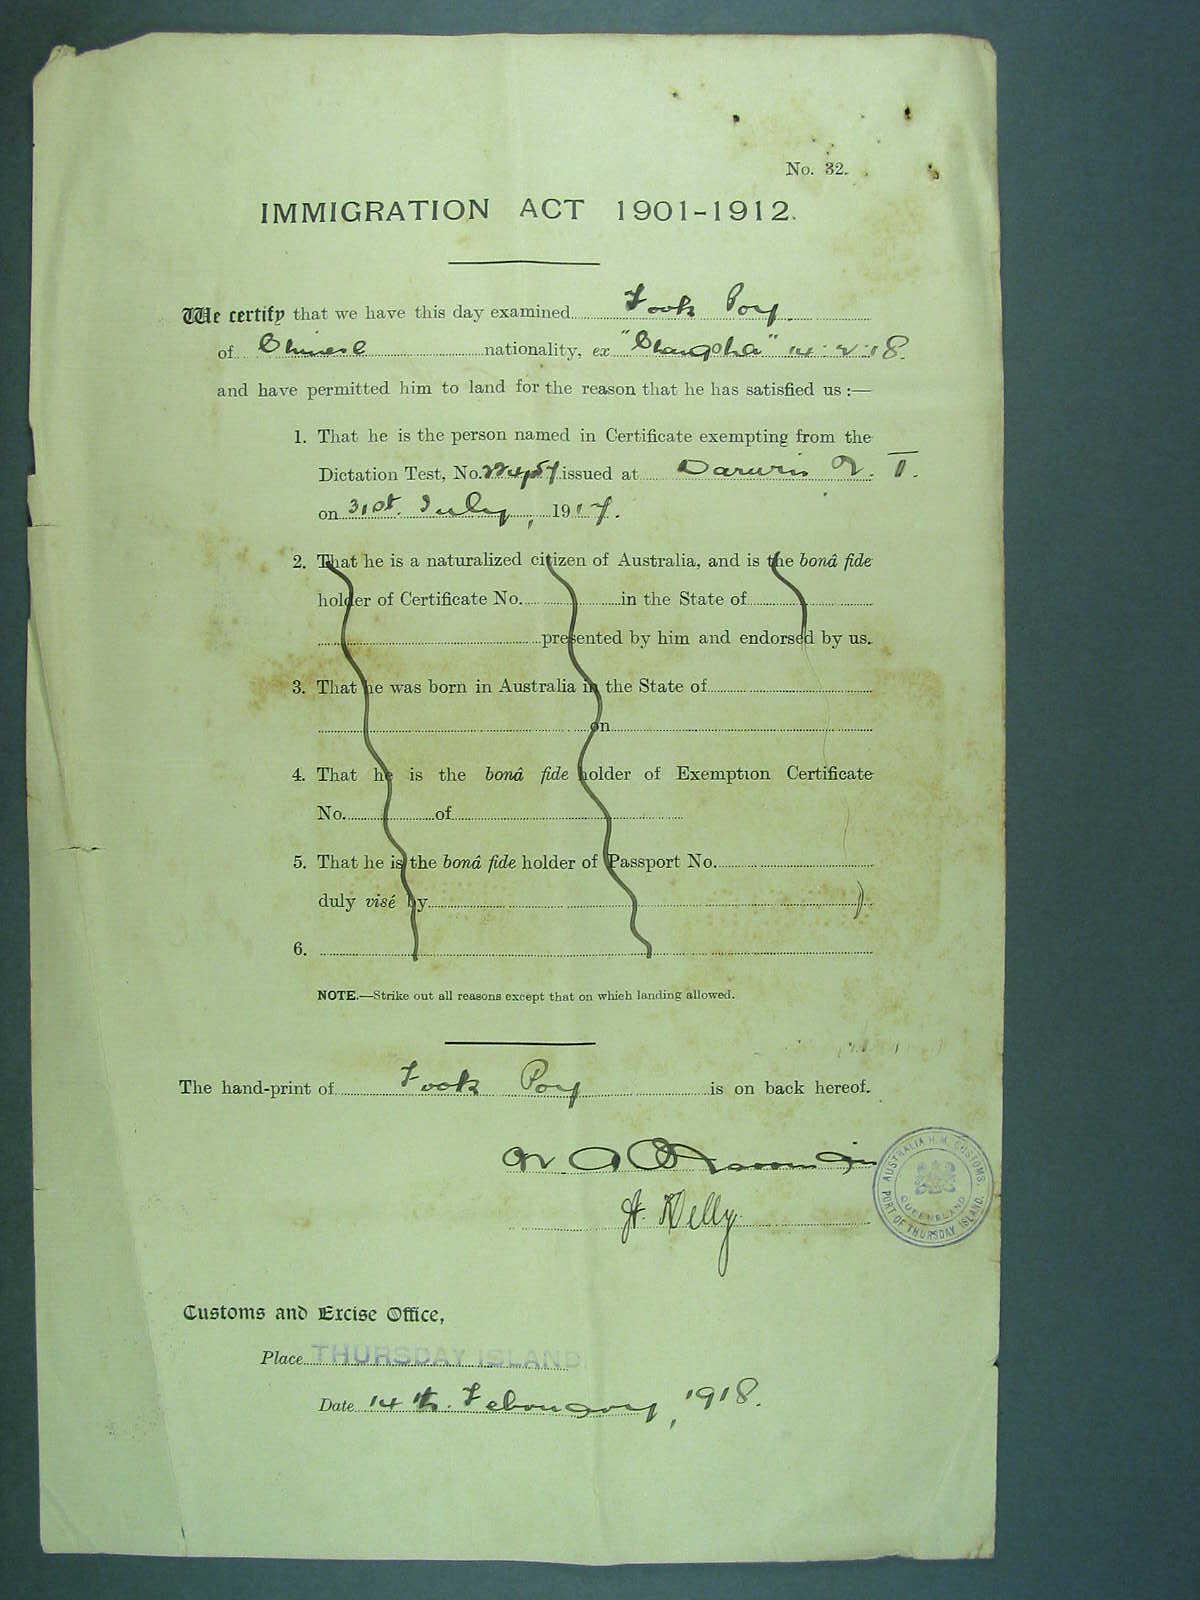 No. 32.
IMMIGRATION ACT 1901-1912.
We certify that we have this day examined Fook Poy.
of Chinese nationality, ex "Changsha" 14.2.18.
and have permitted him to land for the reason that he has satisfied us :—
1. That he is the person named in Certificate exempting from the
Dictation Test, No. issued at Darwin N. T.
on 31st. July, 1917.
2. That he is a naturalized citizen of Australia, and is the bonâ fide
holder of Certificate No. in the State of
presented by him and endorsed by us.
3. That he was born in Australia in the State of
on
4. That he is the bonâ fide holder of Exemption Certificate
No. of
5. That he is the bonâ fide holder of Passport No.
duly visé by
6.
NOTE.—Strike out all reasons except that on which landing allowed.
The hand-print of Fook Poy is on back hereof.
H. Kelly
AUSTRALIA H.M. CUSTOMS.
QUEENSLAND
PORT OF THURSDAY ISLAND.
Customs and Excise Office,
Place THURSDAY ISLAND.
Date 14th. February, 1918.